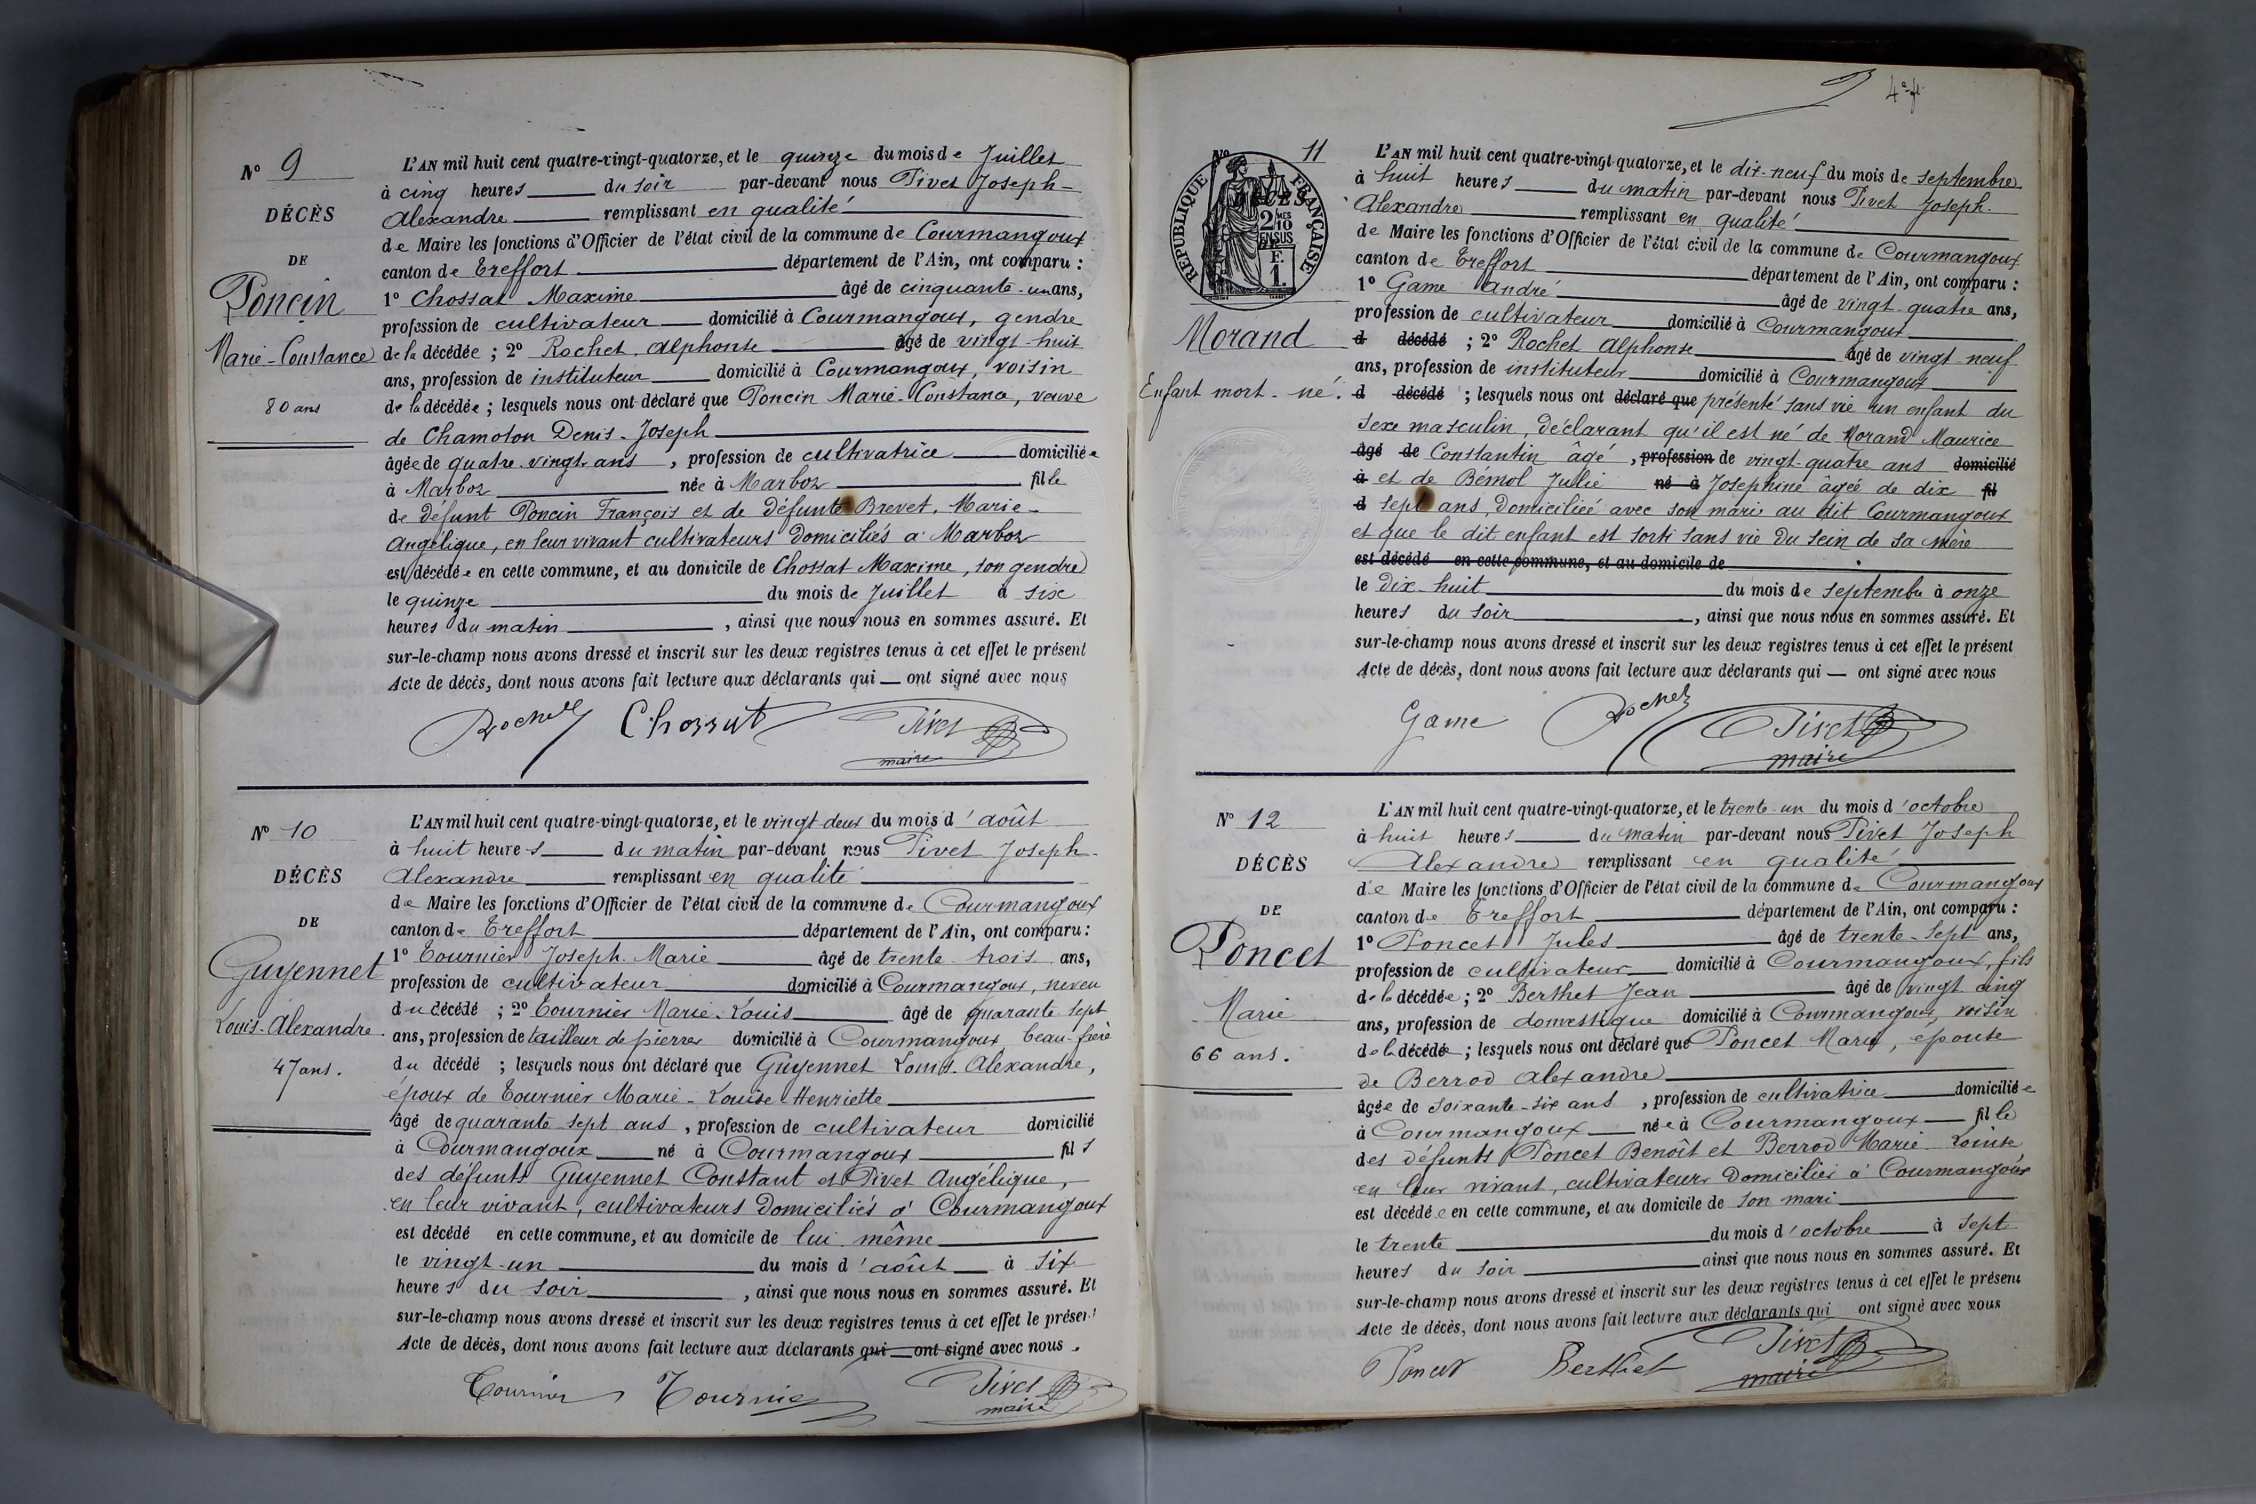 N° 9
DÉCÈS
DE
Poncin
Marie-Constance
80 ans
L'AN mil huit cent quatre-vingt-quatorze, et le quinze du mois de Juillet
à cinq heures du soir par-devant nous Pivet Joseph-
Alexandre remplissant en qualité
de Maire les fonctions d'Officier de l'état civil de la commune de Courmangoux
canton de Treffort département de l'Ain, ont comparu :
1° Chossat Maxime âgé de cinquante-un ans,
profession de cultivateur domicilié à Courmangoux, gendre
de la décédée ; 2° Rochet Alphonse âgé de vingt-huit
ans, profession de instituteur domicilié à Courmangoux, voisin
de la décédée ; lesquels nous ont déclaré que Poncin Marie-Constance, veuve
de Chamoton Denis-Joseph
âgée de quatre-vingts ans, profession de cultivatrice domiciliée
à Marboz née à Marboz fille
de défunt Poncin François et de défunte Brevet, Marie-
Angélique, en leur vivant cultivateurs domiciliés à Marboz
est décédée en cette commune, et au domicile de Chossat Maxime, son gendre
le quinze du mois de Juillet à six
heures du matin, ainsi que nous nous en sommes assuré. Et
sur-le-champ nous avons dressé et inscrit sur les deux registres tenus à cet effet le présent
Acte de décès, dont nous avons fait lecture aux déclarants qui — ont signé avec nous
Rochet Chossat Pivet
maire
N° 10
DÉCÈS
DE
Guyennet
Louis-Alexandre
47 ans.
L'AN mil huit cent quatre-vingt-quatorze, et le vingt-deux du mois d'août
à huit heures du matin par-devant nous Pivet Joseph-
Alexandre remplissant en qualité
de Maire les fonctions d'Officier de l'état civil de la commune de Courmangoux
canton de Treffort département de l'Ain, ont comparu :
1° Tournier Joseph-Marie âgé de trente-trois ans,
profession de cultivateur domicilié à Courmangoux, neveu
du décédé ; 2° Tournier Marie-Louis âgé de quarante-sept
ans, profession de tailleur de pierres domicilié à Courmangoux beau-frère
du décédé ; lesquels nous ont déclaré que Guyennet Louis-Alexandre,
époux de Tournier Marie-Louise Henriette
âgé de quarante-sept ans, profession de cultivateur domicilié
à Courmangoux né à Courmangoux fils
des défunts Guyennet Constant et Pivet Angélique,
en leur vivant, cultivateurs domiciliés à Courmangoux
est décédé en cette commune, et au domicile de lui-même
le vingt-un du mois d'août à six
heures du soir, ainsi que nous nous en sommes assuré. Et
sur-le-champ nous avons dressé et inscrit sur les deux registres tenus à cet effet le présent
Acte de décès, dont nous avons fait lecture aux déclarants qui — ont signé avec nous.
Tournier Tournier Pivet
maire
4e f.
N° 11
DÉCÈS
RÉPUBLIQUE FRANÇAISE
2/10 MES
EN SUS
F.
1.
Morand
Enfant mort-né.
L'AN mil huit cent quatre-vingt-quatorze, et le dix-neuf du mois de septembre
à huit heures du matin par-devant nous Pivet Joseph-
Alexandre remplissant en qualité
de Maire les fonctions d'Officier de l'état civil de la commune de Courmangoux
canton de Treffort département de l'Ain, ont comparu :
1° Game André âgé de vingt-quatre ans,
profession de cultivateur domicilié à Courmangoux
d décédé ; 2° Rochet Alphonse âgé de vingt-neuf
ans, profession de instituteur domicilié à Courmangoux
d décédé ; lesquels nous ont déclaré que présenté sans vie un enfant du
sexe masculin, déclarant qu'il est né de Morand Maurice
âgé de Constantin âgé, profession de vingt-quatre ans domicilié
à et de Bémol Julie né à Joséphine âgée de dix fil
d sept ans, domiciliée avec son mari au dit Courmangoux
et que le dit enfant est sorti sans vie du sein de sa mère
est décédé en cette commune, et au domicile de
le dix-huit du mois de septembre à onze
heures du soir, ainsi que nous nous en sommes assuré. Et
sur-le-champ nous avons dressé et inscrit sur les deux registres tenus à cet effet le présent
Acte de décès, dont nous avons fait lecture aux déclarants qui — ont signé avec nous
Game Rochet Pivet
maire
N° 12
DÉCÈS
DE
Poncet
Marie
66 ans.
L'AN mil huit cent quatre-vingt-quatorze, et le trente-un du mois d'octobre
à huit heures du matin par-devant nous Pivet Joseph
Alexandre remplissant en qualité
de Maire les fonctions d'Officier de l'état civil de la commune de Courmangoux
canton de Treffort département de l'Ain, ont comparu :
1° Poncet Jules âgé de trente-sept ans,
profession de cultivateur domicilié à Courmangoux, fils
de la décédée ; 2° Berthet Jean âgé de vingt cinq
ans, profession de domestique domicilié à Courmangoux, voisin
de la décédée ; lesquels nous ont déclaré que Poncet Marie, épouse
de Berrod Alexandre
âgée de soixante-six ans, profession de cultivatrice domiciliée
à Courmangoux née à Courmangoux fille
des défunts Poncet Benoît et Berrod Marie-Louise
en leur vivant, cultivateurs domiciliés à Courmangoux
est décédée en cette commune, et au domicile de son mari
le trente du mois d'octobre à sept
heures du soir ainsi que nous nous en sommes assuré. Et
sur-le-champ nous avons dressé et inscrit sur les deux registres tenus à cet effet le présent
Acte de décès, dont nous avons fait lecture aux déclarants qui ont signé avec nous
Poncet Berthet Pivet
maire